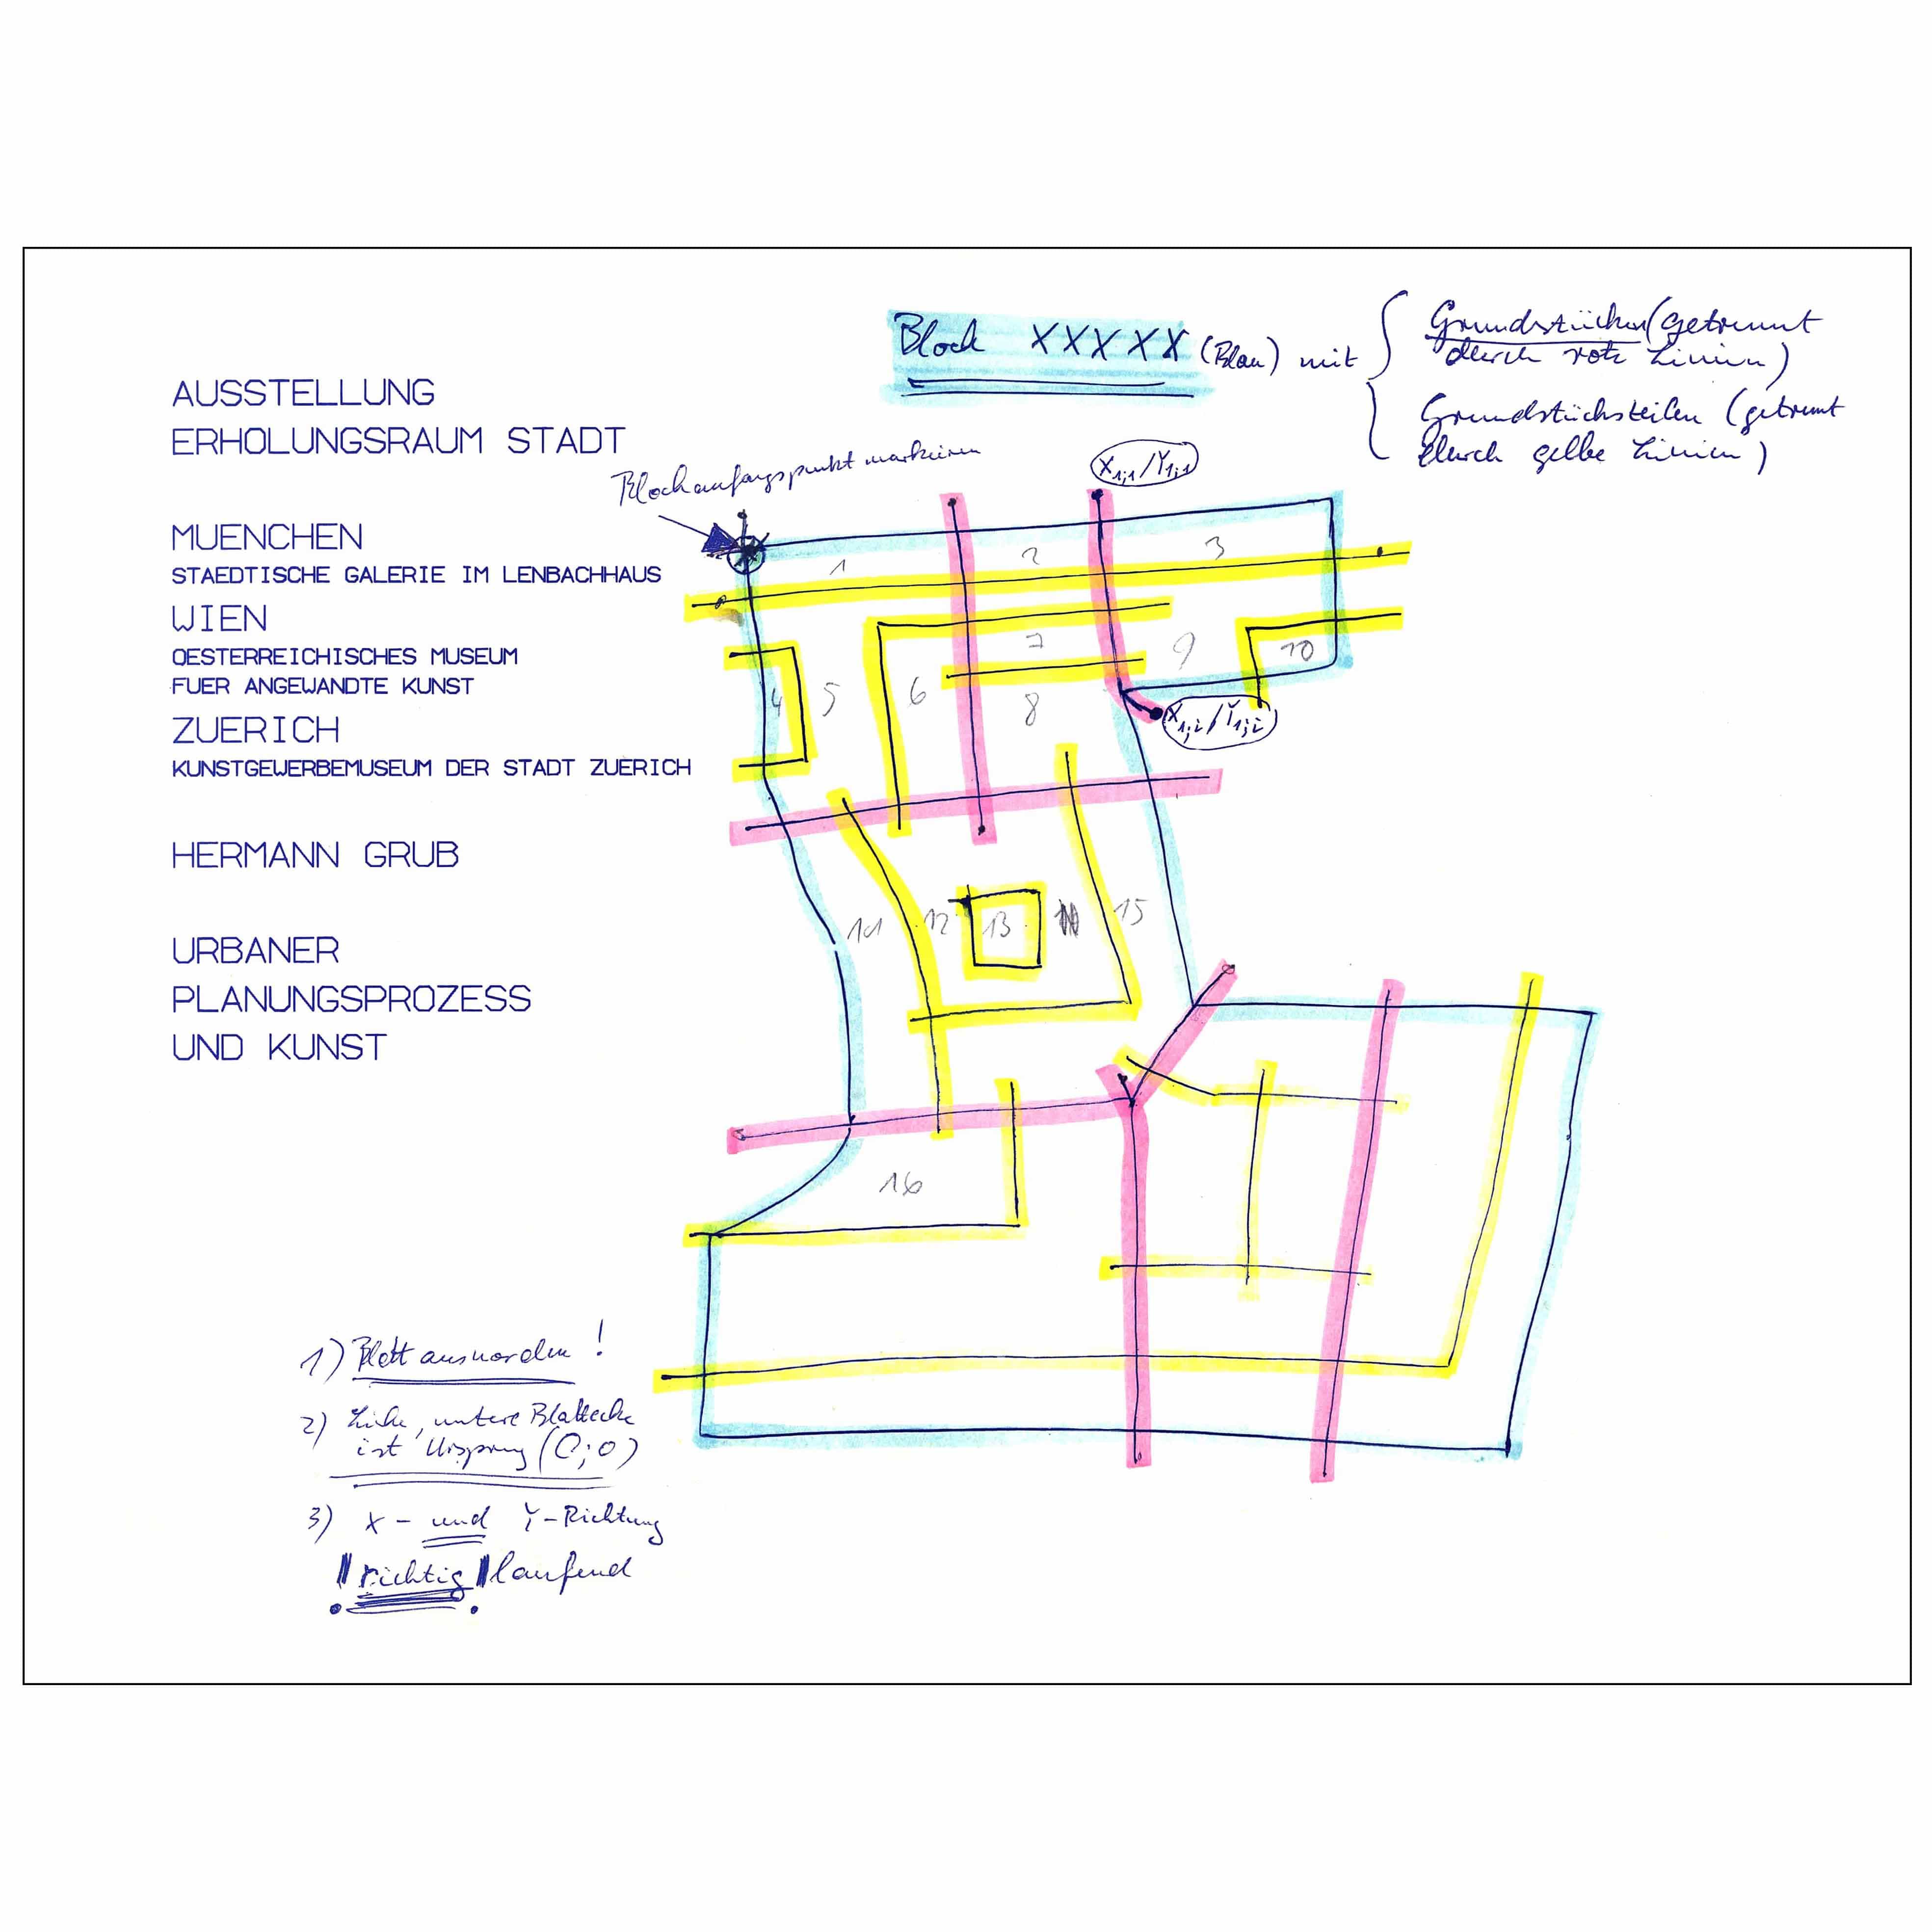 Block XXXXX (Blau) mit
Grundstücken (getrennt
durch rote Linien)
Grundstücksteilen (getrennt
durch gelbe Linien)
AUSSTELLUNG
ERHOLUNGSRAUM STADT
MUENCHEN
STAEDTISCHE GALERIE IM LENBACHHAUS
WIEN
OESTERREICHISCHES MUSEUM
FUER ANGEWANDTE KUNST
ZUERICH
KUNSTGEWERBEMUSEUM DER STADT ZUERICH
HERMANN GRUB
URBANER
PLANUNGSPROZESS
UND KUNST
Blockanfangspunkt markieren
X1;1/Y1;1
1
2
3
4
5
6
7
8
9
10
X1;2/Y1;2
11
12
13
15
16
1) Blatt ausnorden!
2) Linke, untere Blattecke
ist Ursprung (0;0)
3) X- und Y-Richtung
! richtig ! laufend